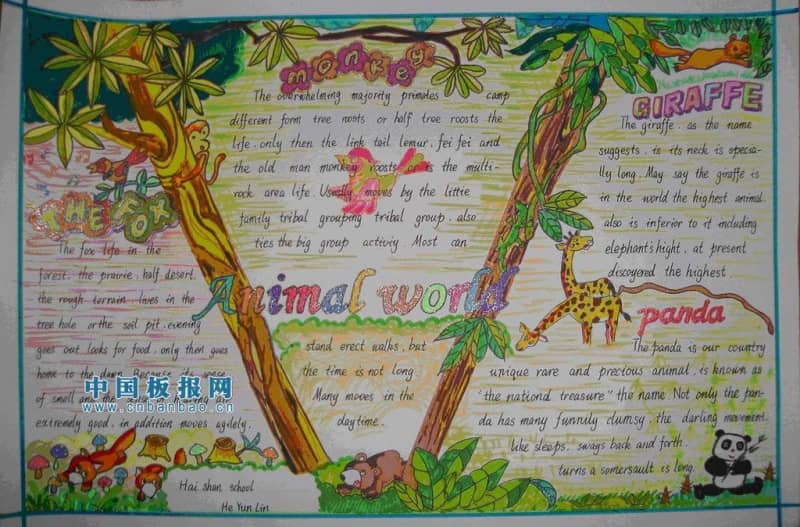 monkey
The overwhelming majority primates camp
different form tree roosts or half tree roosts the
life, only then the link tail lemur, fei fei and
the old man monkey roosts or is the multi-
rock area life. Usually moves by the little
family tribal grouping tribal group, also
ties the big group activiy Most can
stand erect walks, but
the time is not long.
Many moves in the
daytime.
Animal world
THE FOX
The fox life in the
forest, the prairie, half desert,
the rough terrain, lives in the
tree hole or the soil pit, evening
goes out looks for food, only then goes
home to the dawn. Because its sense
of smell and the sense of hearing
extremely good, in addition moves agilely.
中国板报网
www.cnbanbao.cn
Hai shan school
He Yun Lin
GIRAFFE
The giraffe, as the name
suggests, is its neck is specia-
lly long. May say the giraffe is
in the world the highest animal.
also is inferior to it including
elephant's hight, at present
discoyered the highest.
panda
The panda is our country
unique rare and precious animal, is known as
"the national treasure" the name. Not only the pan-
da has many funnily clumsy, the darling movement.
like sleeps, sways back and forth,
turns a somersault is long.